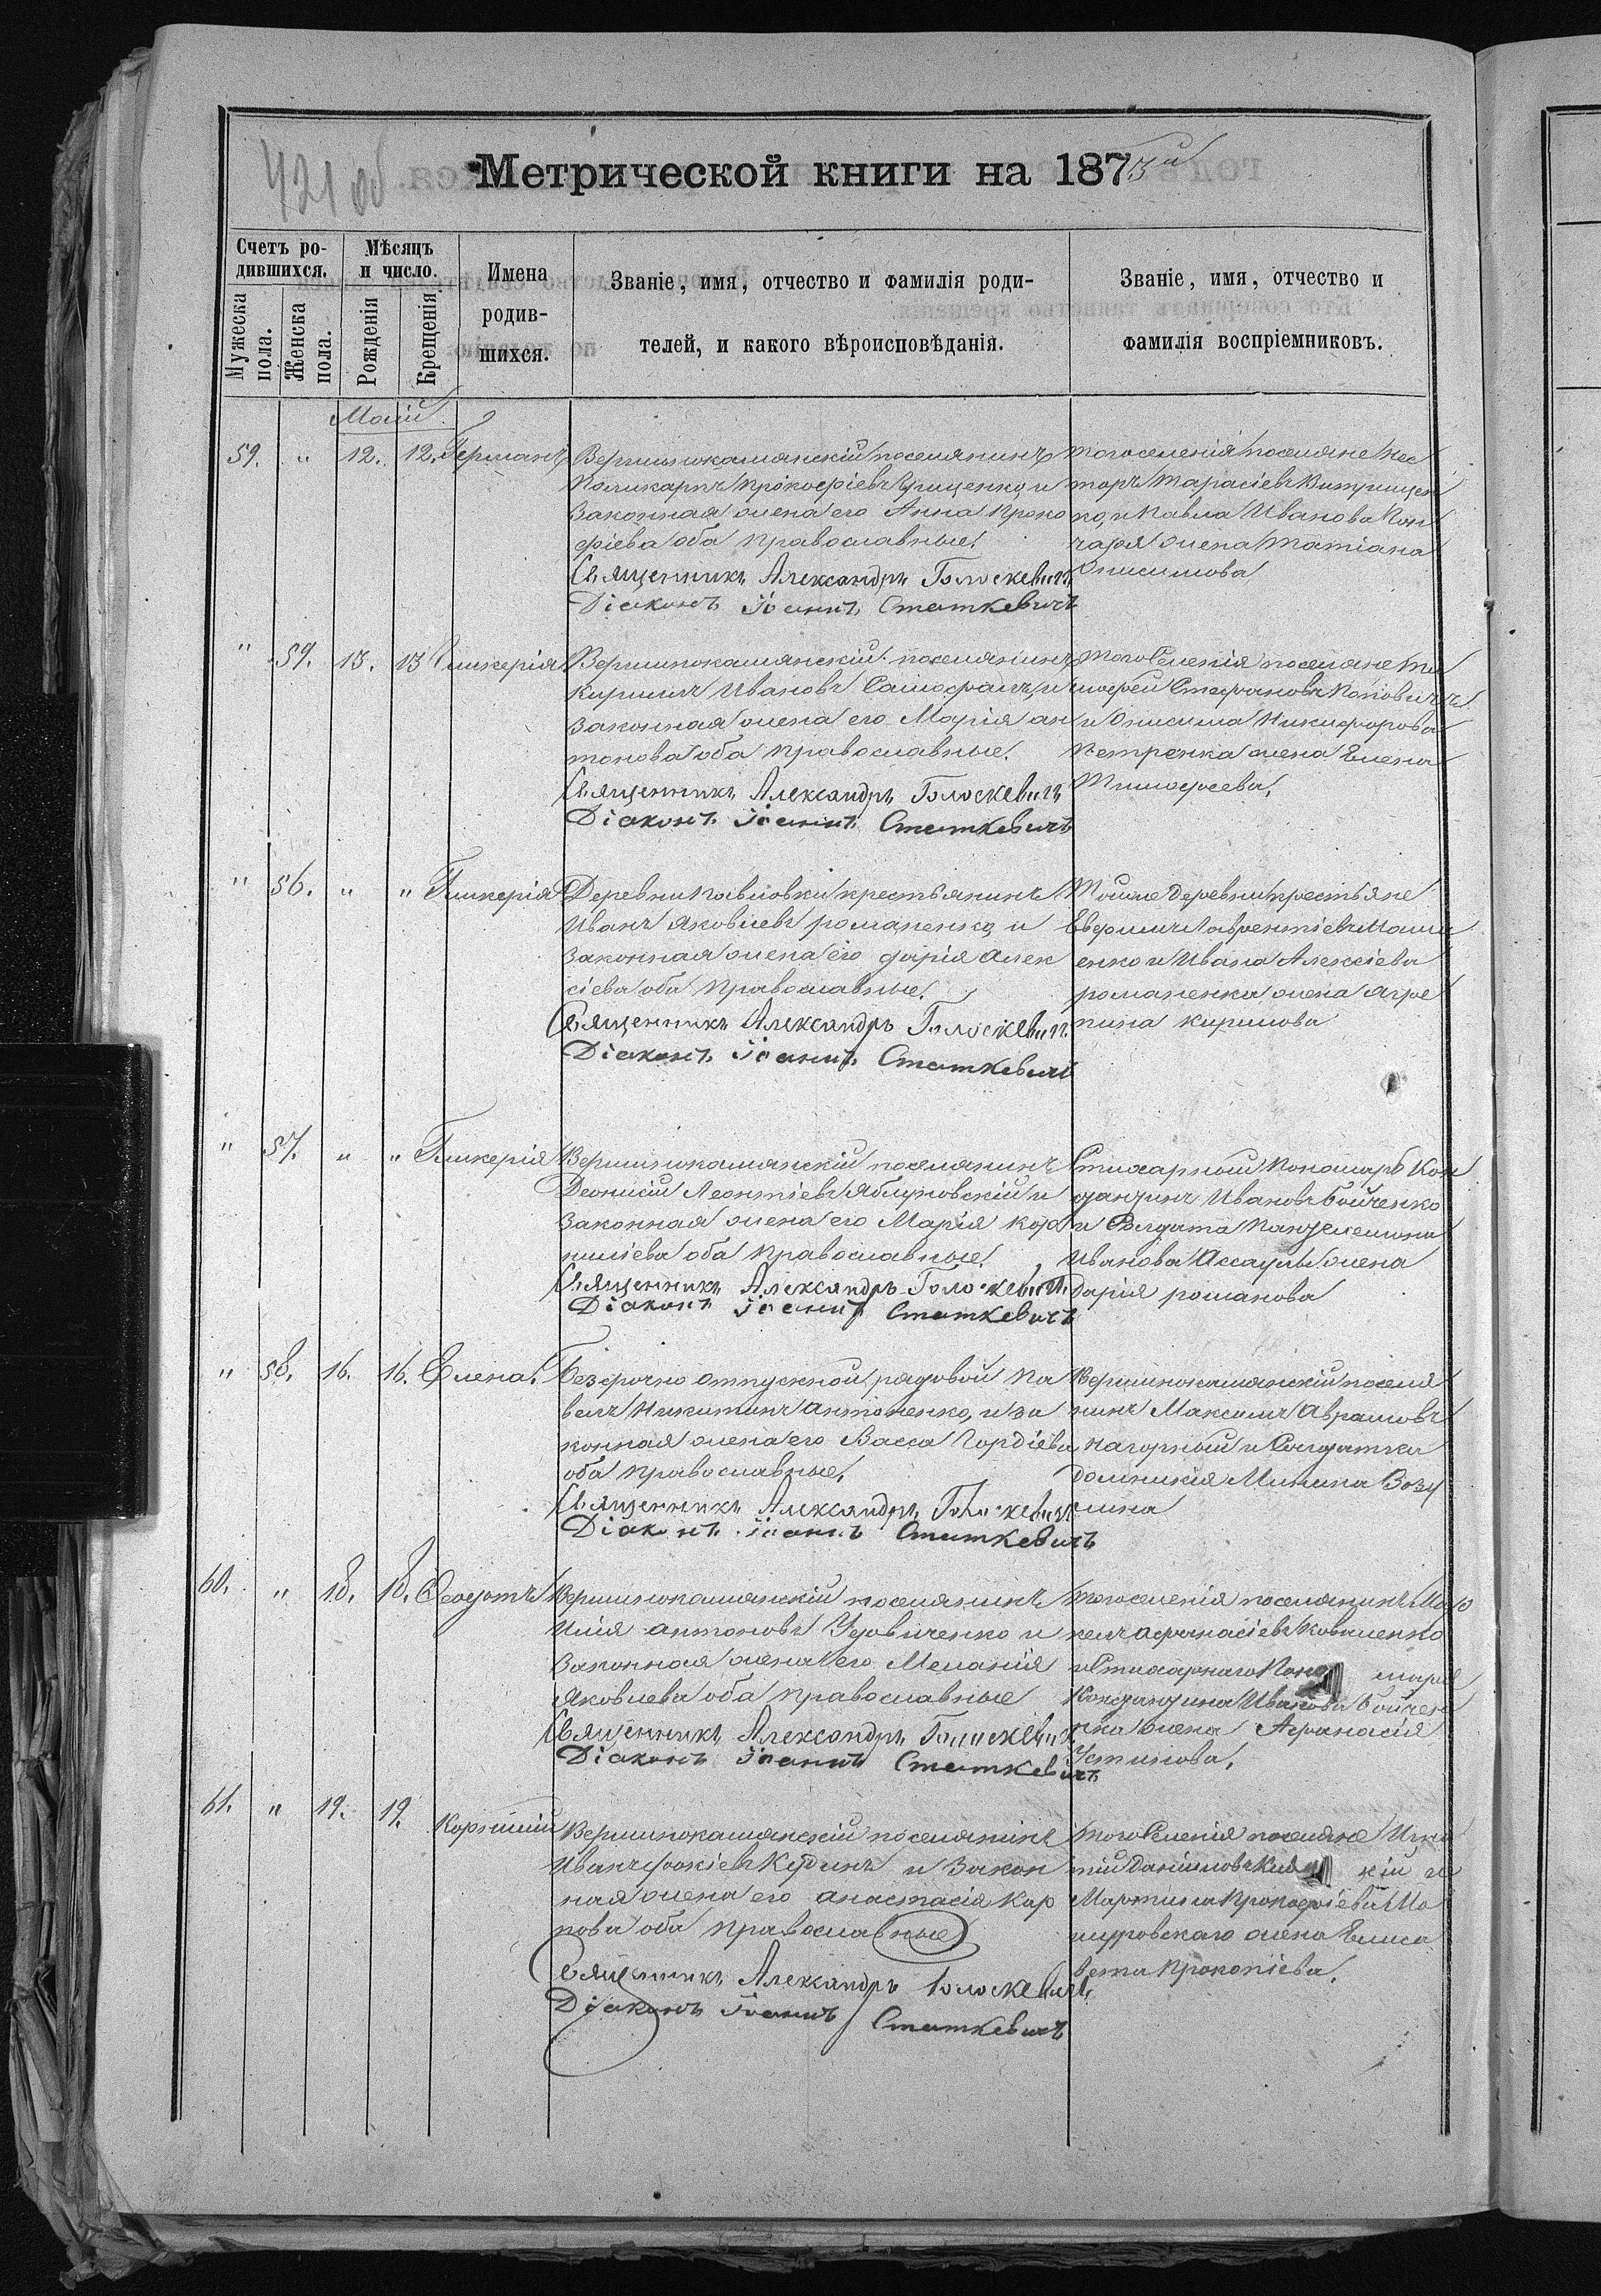 421 об
Метрической книги на 1873й
Счетъ ро-
дившихся.
Мужеска пола.
Женска пола.
Мѣсяцъ
и число.
Рожденія
Крещенія
Имена
родив-
шихся.
Званіе, имя, отчество и фамилія роди-
телей, и какого вѣроисповѣданія.
Званіе, имя, отчество и
фамилія воспріемниковъ.
Маій
59. " 12. 12. Германъ
Вершинокамянскій поселянинъ
Поликарпъ Прокофіевъ Грищенко, и
законная жена его Анна Проко
фіева оба православные.
Священникъ Александръ Голоскевичъ
Діаконъ Іоаннъ Статкевичъ
того селенія поселяне Нес
торъ Тарасіевъ
ко, и Павла Иванова Гон
чара жена Татіана
Онисимова
" 59. 13. 13 Гликерія
Вершинокамянскій поселянинъ
Кириллъ Ивановъ Самофалъ, и
законная жена его Марія Ан
тонова оба православные.
Священникъ Александръ Голоскевичъ
Діаконъ Іоаннъ Статкевичъ
того селенія поселяне Ти
мофей Стефановъ Поповичъ
и Онисима Никифорова
Петренка жена Елена
Тимофеева.
" 56. " " Гликерія
Деревни Павловки крестьянинъ
Иванъ Яковлевъ Романенко, и
законная жена его Дарія Алек
сіева оба православные.
Священникъ Александръ Голоскевичъ
Діаконъ Іоаннъ Статкевичъ
Тойже деревни крестьяне
Евфимъ Лаврентіевъ
енко и Ивана Алексіева
Романенка жена Агре
пина Кирилова
" 57. " " Гликерія
Вершинокамянскій поселянинъ
Деонисій Леонтіевъ Яблуновскій и
законная жена его Марія Кор
ниліева оба православные.
Священникъ Александръ Голоскевичъ
Діаконъ Іоаннъ Статкевичъ
Стихарный Пономарь Кон
Ивановъ Бойченко
и Солдата Пантелемона
Иванова Ассаулы жена
Дарія Романова
" 58. 16. 16. Елена.
Безсрочно отпускной рядовой Па
велъ Никитинъ Антоненко, и за
конная жена его Васса Гордіева
оба православные.
Священникъ Александръ Голоскевичъ
Діаконъ Іоаннъ Статкевичъ
Вершинокамянскій поселя
нинъ Максимъ Аврамовъ
Нагорный и Солдатка
Домникія Минина Возу
лина
60. " 18. 18. Феодотъ
Вершинокамянскій поселянинъ
Илія Антоновъ Удовиченко и
законная жена его Меланія
Яковлева оба православные
Священникъ Александръ Голоскевичъ
Діаконъ Іоаннъ Статкевичъ
того селенія поселянинъ Мар
келъ Афанасіевъ Коваленко
и Стихарнаго Поно маря
Иванова Бойчен
ка жена Афанасія
Устинова.
61. " 19. 19. Корнилій
Вершинокамянскій поселянинъ
Иванъ Фокіевъ Кудинъ и закон
ная жена его Анастасія Кар
пова оба православные
Священникъ Александръ Голоскевичъ
Діаконъ Іоаннъ Статкевичъ
того селенія поселяне Игна
тій Даніиловъ кій и
Мартина Прокофіева Мо
жена Елиса
вета Прокопіева.